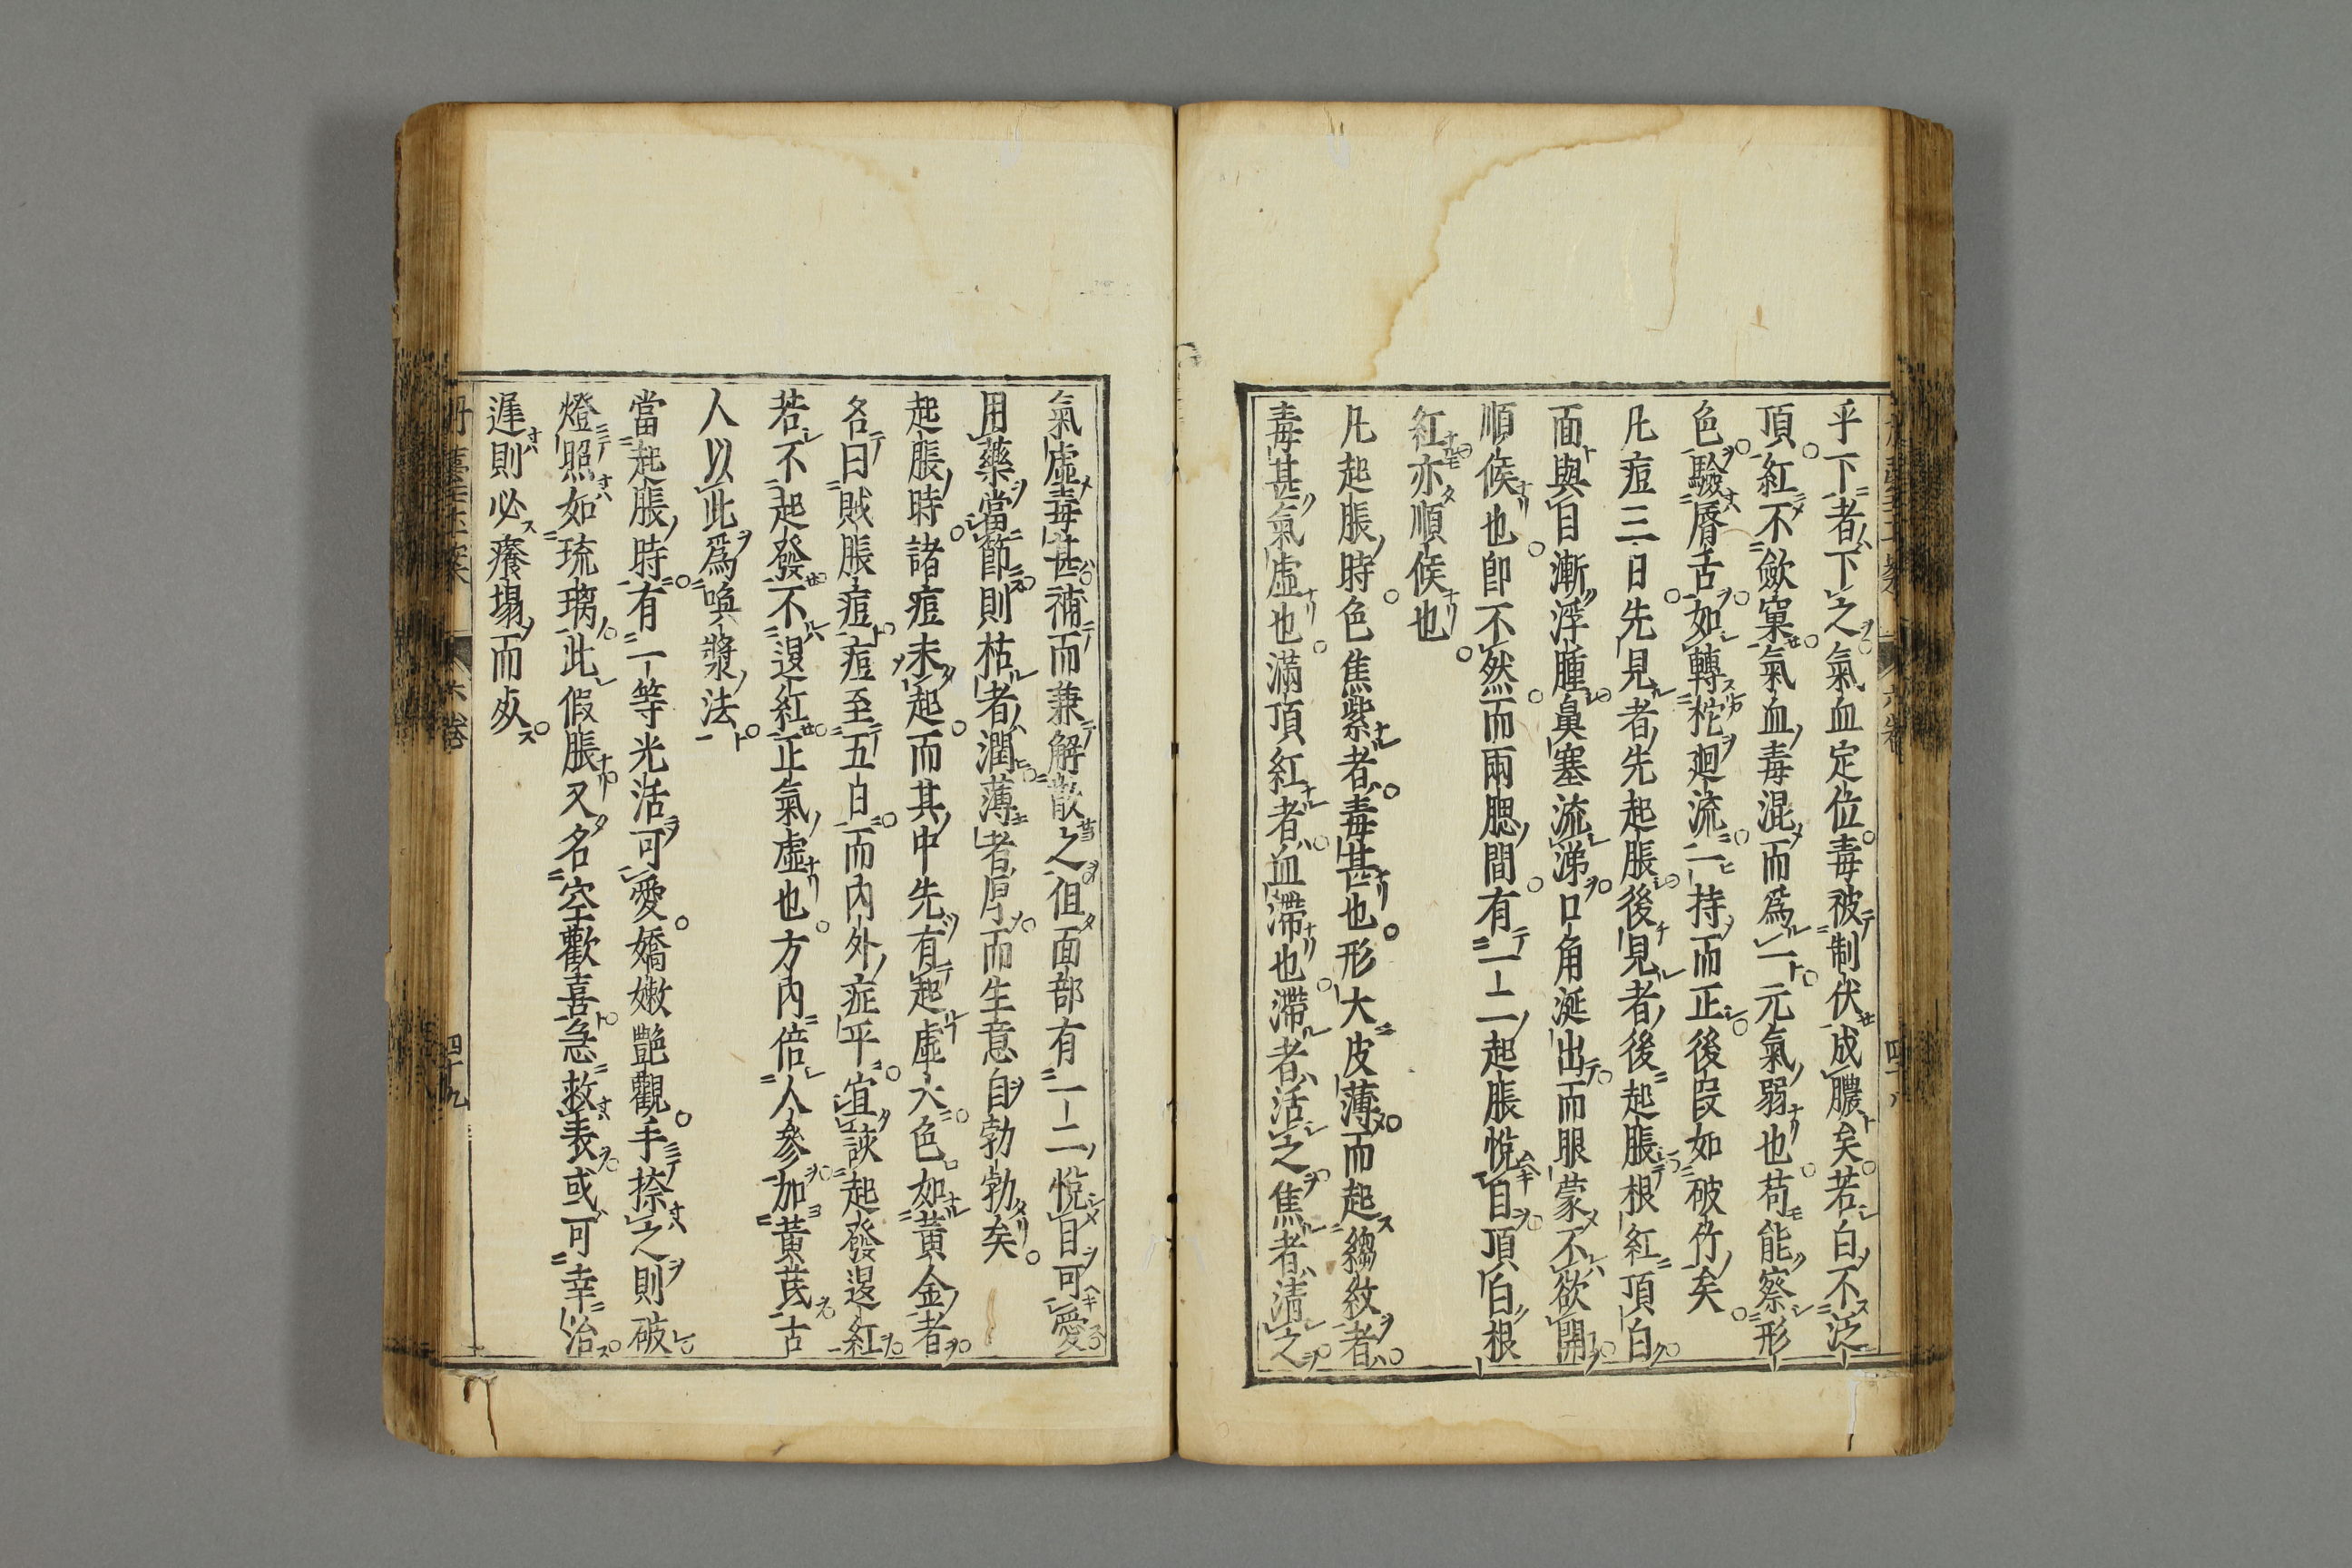 乎下者下之氣血定位毒被制伏成膿矣若白不泛
頂紅不歛窠氣血毒混而爲一元氣弱也苟能察形
色驗脣舌如轉柁廻流二持而正後段如破竹矣
凡痘三日先見者先起脹後見者後起脹根紅頂白
面與目漸浮腫鼻塞流涕口角涎出而眼蒙不欲開
順候也卽不然而兩腮間有一二起脹悅目頂白根
紅亦順候也
凡起脹時色焦紫者毒甚也形大皮薄而起縐紋者
毒甚氣虛也滿頂紅者血滯也滯者活之焦者清之
氣虛毒甚補而兼解散之但面部有一二悅目可愛
用藥當節則枯者潤薄者厚而生意自勃勃矣
起脹時諸痘未起而其中先有起虛大色如黃金者
名曰賊脹痘痘至五日而內外症平宜議起發退紅
若不起發不退紅正氣虛也方內倍人參加黃芪古
人以此爲喚漿法
當起脹時有一等光活可愛嬌嫩艷觀手捺之則破
燈照如琉璃此假脹又名空歡喜急救表或可幸治
遲則必癢塌而死
六卷
四十九